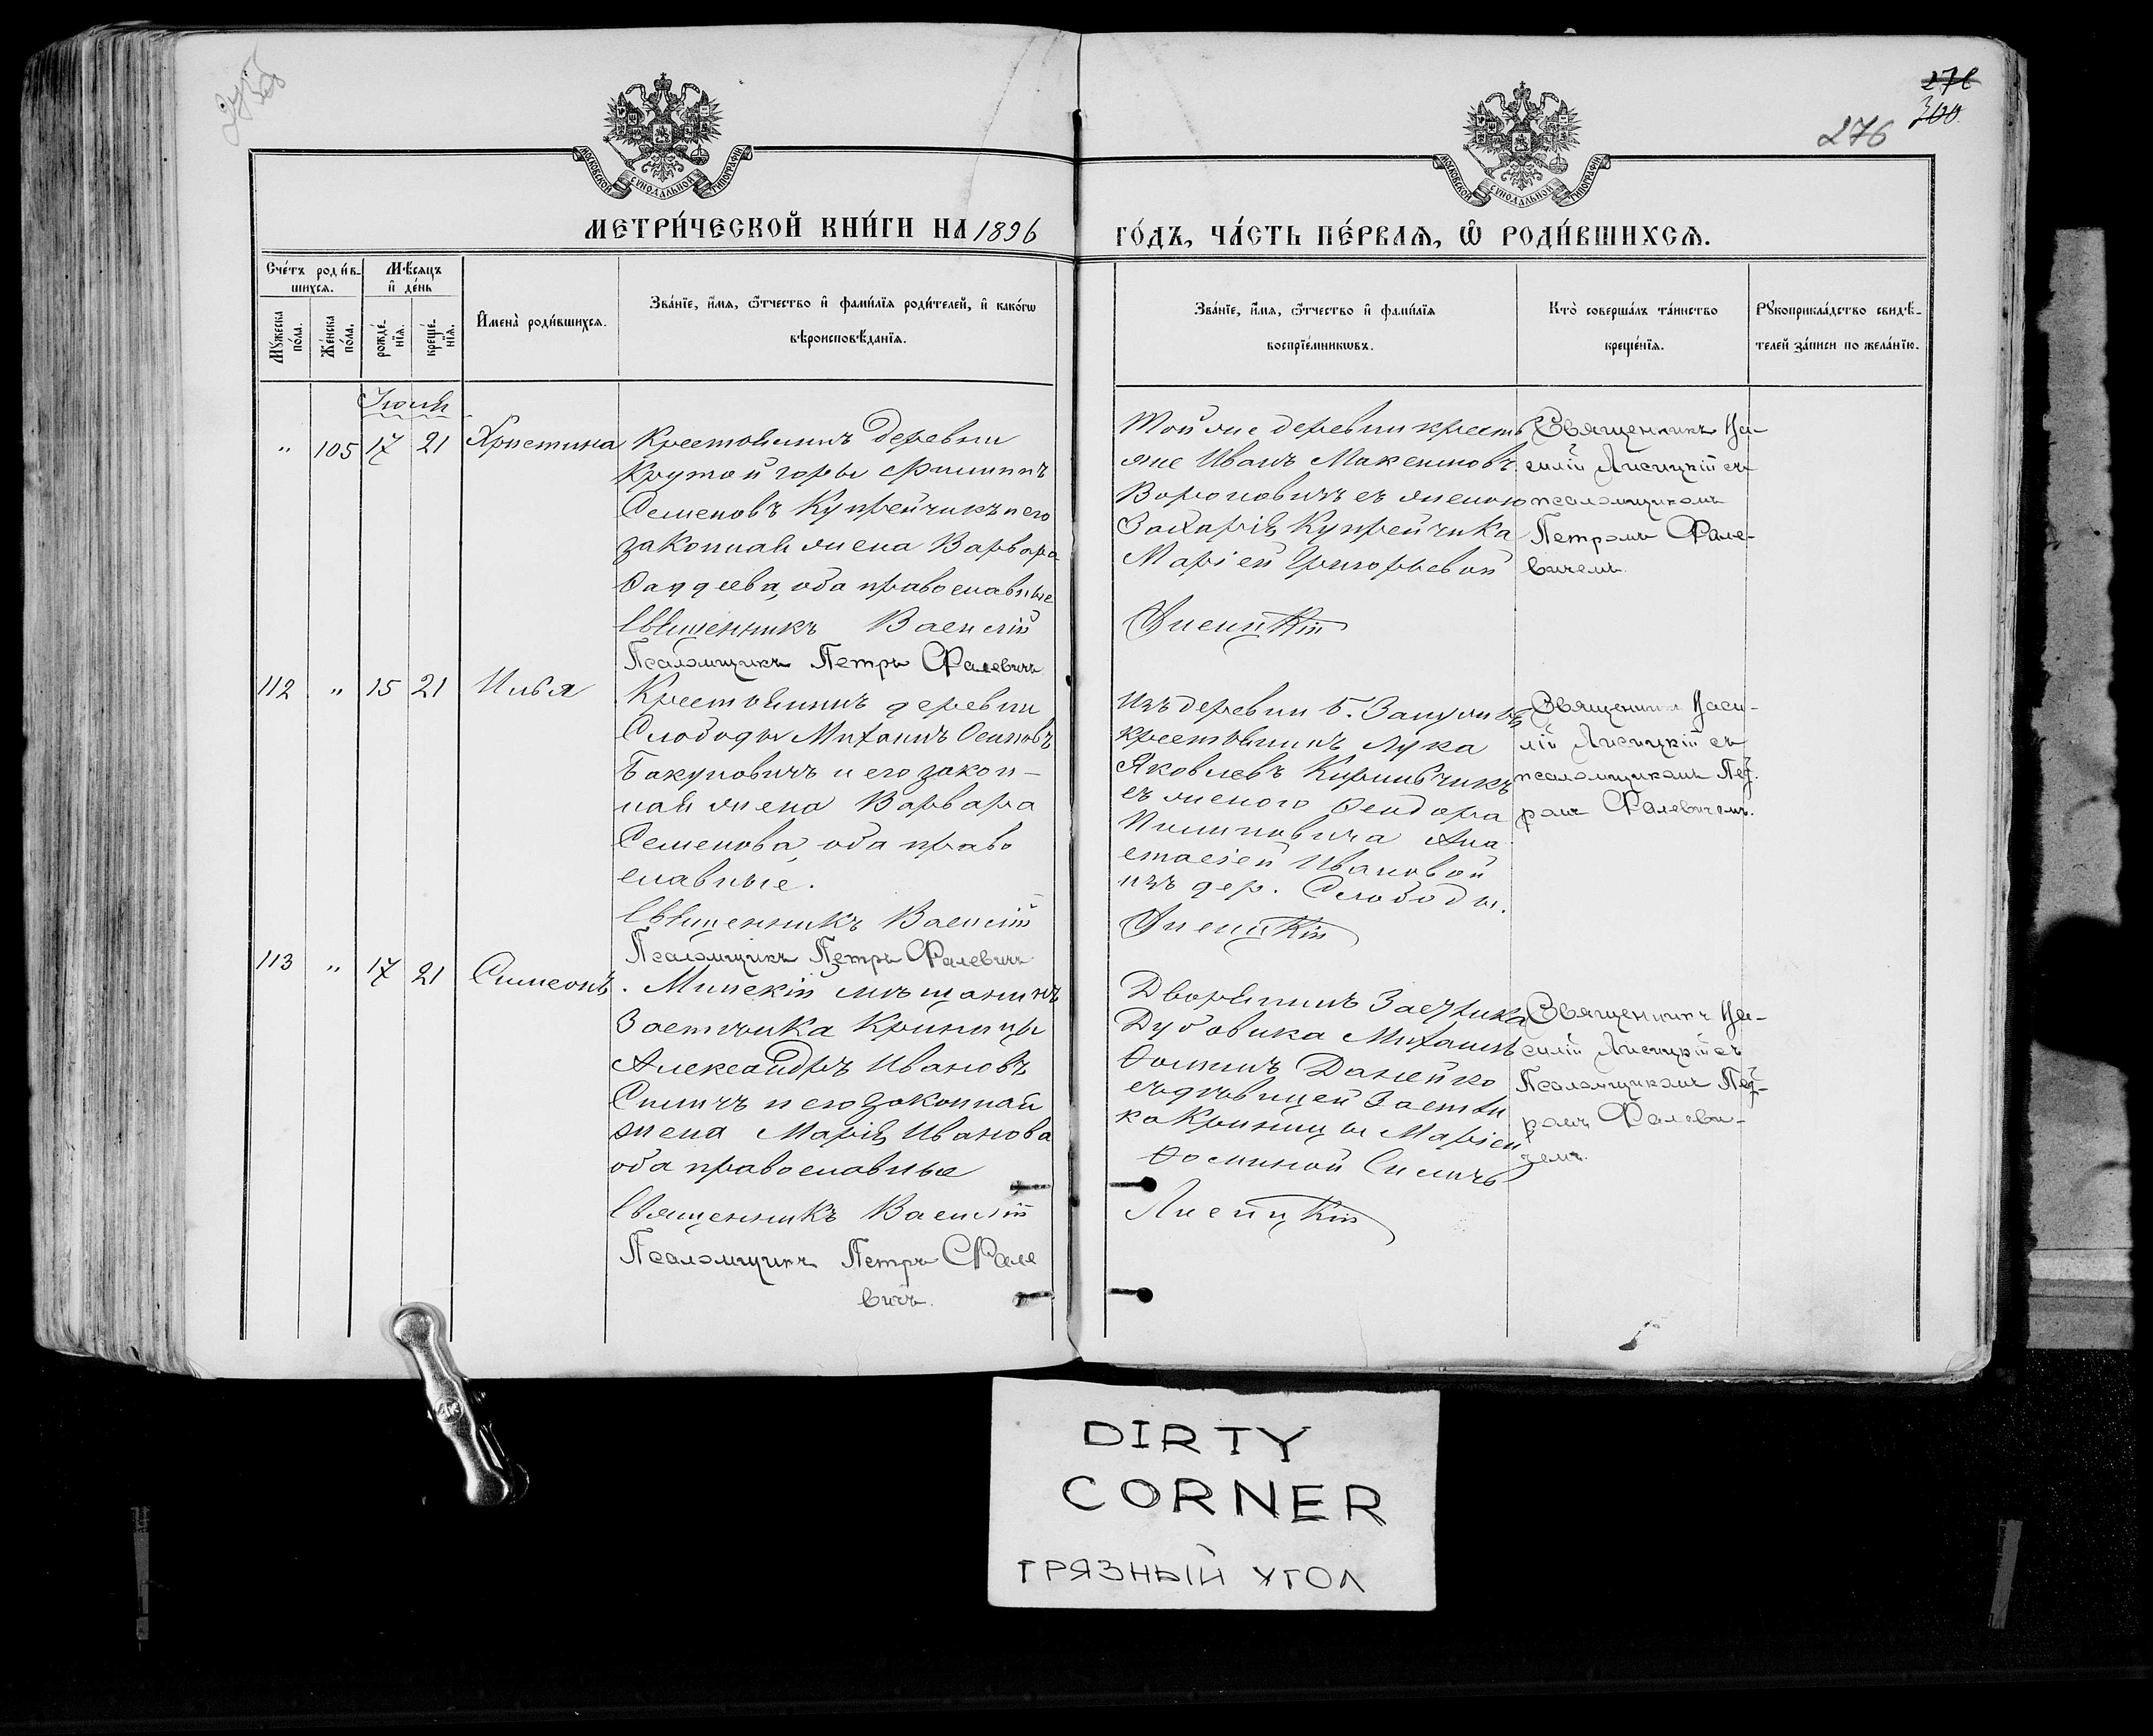 276
300
276
МОСКОВСКОЙ СУНОДАЛЬНОЙ ТИПОГРАФІИ
МОСКОВСКОЙ СУНОДАЛЬНОЙ ТИПОГРАФІИ
МЕТРИ́ЧЕСКОЙ КНИ́ГИ НА 1896
ГО́ДЪ, ЧА́СТЬ ПЕ́РВАѦ, Ѡ РОДИ́ВШИХСѦ.
Сче́тъ роди́в-
шихсѧ.
Мѣ́сѧцъ
и҆ де́нь
Мꙋ́жеска
по́ла.
Же́нска
по́ла.
рожде́-
нїѧ.
креще́-
нїѧ.
И҆мена̀ роди́вшихсѧ.
Зва́нїе, и҆́мѧ, ѻ҆́тчество и҆ фами́лїѧ роди́телей, и҆ како́гѡ
вѣроисповѣ́данїѧ.
Зва́нїе, и҆́мѧ, ѻ҆́тчество и҆ фами́лїѧ
воспрїе́мникѡвъ.
Кто̀ соверша́лъ та́инство
креще́нїѧ.
Рꙋкоприкла́дство свидѣ́-
телей за́писи по жела́нїю.
Іюль
" 105 17 21 Христина Крестьянинъ деревни
Крутой горы Филиппъ
Семеновъ Купрейчикъ и его
законная жена Варвара
Фаддеева, оба православные
Священникъ Василій
Псаломщикъ Петръ Фалевичъ
Той же деревни кресть
яне Иванъ Максимовъ
Вороновичъ съ женою
Захарія Купрейчика
Маріей Григорьевой
Лисицкій
Священникъ Ва-
силій Лисицкій съ
псаломщикомъ
Петромъ Фале-
вичемъ.
112 " 15 21 Илья Крестьянинъ деревни
Слободы Михаилъ Осиповъ
Бакуновичъ и его закон-
ная жена Варвара
Семенова, оба право
славные.
Священникъ Василій
Псаломщикъ Петръ Фалевичъ
Изъ деревни Б.
крестьянинъ Лука
Яковлевъ Кирильчикъ
съ женою Феодора
Пилиповича Ана
стасіей Ивановой
изъ дер. Слободы.
Лисицкій
Священникъ Васи-
лій Лисицкій съ
псаломщикомъ Пет-
ромъ Фалевичемъ.
113 " 17 21 Симеонъ. Минскій мѣщанинъ
Застѣнка Криницы
Александръ Ивановъ
Силичъ и его законная
жена Марія Иванова
оба православные
Священникъ Василій
Псаломщикъ Петръ Фале
вичъ.
Дворянинъ Застѣнка
Дубовика Михаилъ
Фоминъ Данейко
съ дѣвицей Застѣн
ка Криницы Маріей
Фоминой Силичъ
Лисицкій
Священникъ Ва-
силій Лисицкій съ
Псаломщикомъ Пет-
ромъ Фалеви-
чемъ.
DIRTY
CORNER
ГРЯЗНЫЙ УГОЛ